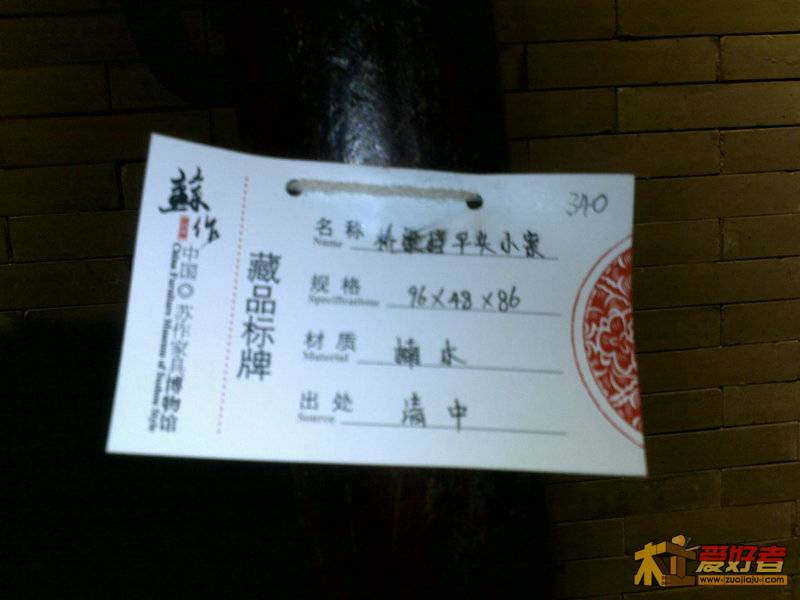 蘇作
中国 苏作家具博物馆
China Furniture Museum of Suzhou Style
藏品标牌
340
名称 平头小案
Name
规格 96×48×86
Specifications
材质 楠木
Material
出处 清中
Source
爱好者
www.izuojiaju.com